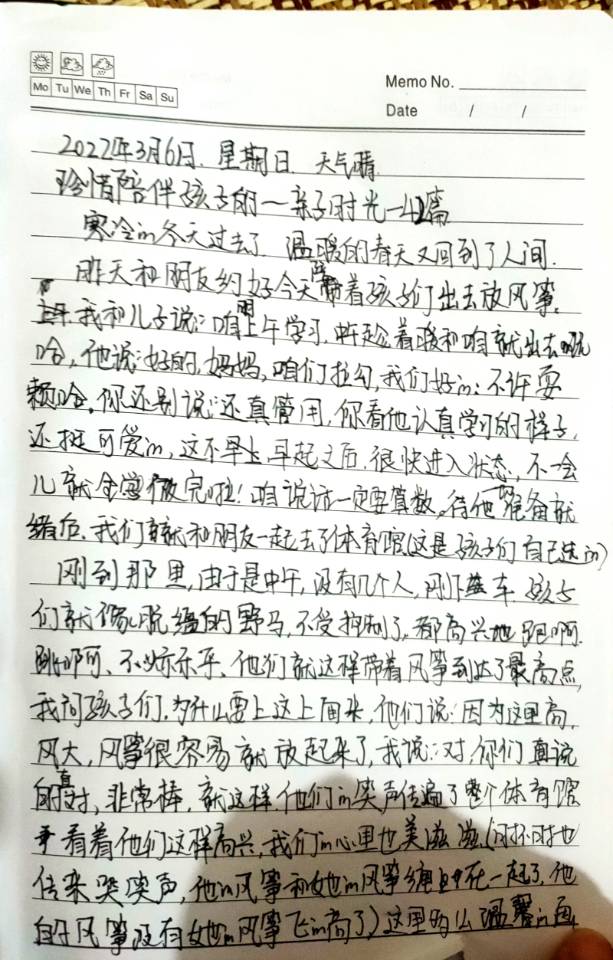 Mo Tu We Th Fr Sa Su
Memo No.
Date / /
2022年3月6日. 星期日 天气晴.
珍惜陪伴孩子的一亲子时光—42篇
寒冷的冬天过去了 温暖的春天又回到了人间.
昨天和朋友约好今天带着孩子们出去放风筝,
上午我和儿子说:咱上午学习,中午趁着暖和咱就出去玩
哈,他说:好的,妈妈,咱们拉勾,我们好的:不许耍
赖哈。你还别说:还真管用,你看他认真学习的样子,
还挺可爱的,这不早上早起之后,很快进入状态,不一会
儿就全做完啦!咱说话一定要算数。待他准备就
绪后,我们就和朋友一起去了体育馆(这是孩子们自己选的)
刚到那里,由于是中午,没有几个人,刚下车 孩子
们就像脱缰的野马,不受抑制了,都高兴地跑啊
跳啊、不亦乐乎、他们就这样带着风筝到达了最高点,
我问孩子们,为什么要上这上面来,他们说:因为这里高,
风大,风筝很容易就放起来了,我说:对,你们真说
的真对,非常棒,就这样,他们的笑声传遍了整个体育馆
看着他们这样高兴,我们的心里也美滋滋(时不时也
传来哭笑声,他的风筝和她的风筝缠在一起了,他
的风筝没有她的风筝飞的高了)这是多么温馨的画